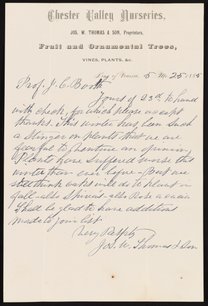 Chester Valley Nurseries.
JOS. W. THOMAS & SON, Proprietors,
Fruit and Ornamental Trees,
VINES, PLANTS, &c.
King of Prussia, 5 Mo 25 1885
Prof. J. C. Booth
Yours of 23rd to hand
with check, for which please accept
thanks. This winter has been such
a stinger on plants that we are
fearful to venture an opinion,
Plants have suffered worse this
winter than ever before – But we
still think it will do to plant in
fall – also Spirea's – also Rose
Shall be glad to have additions
made to your list.
Very Respfy
Jos. W. Thomas & Son